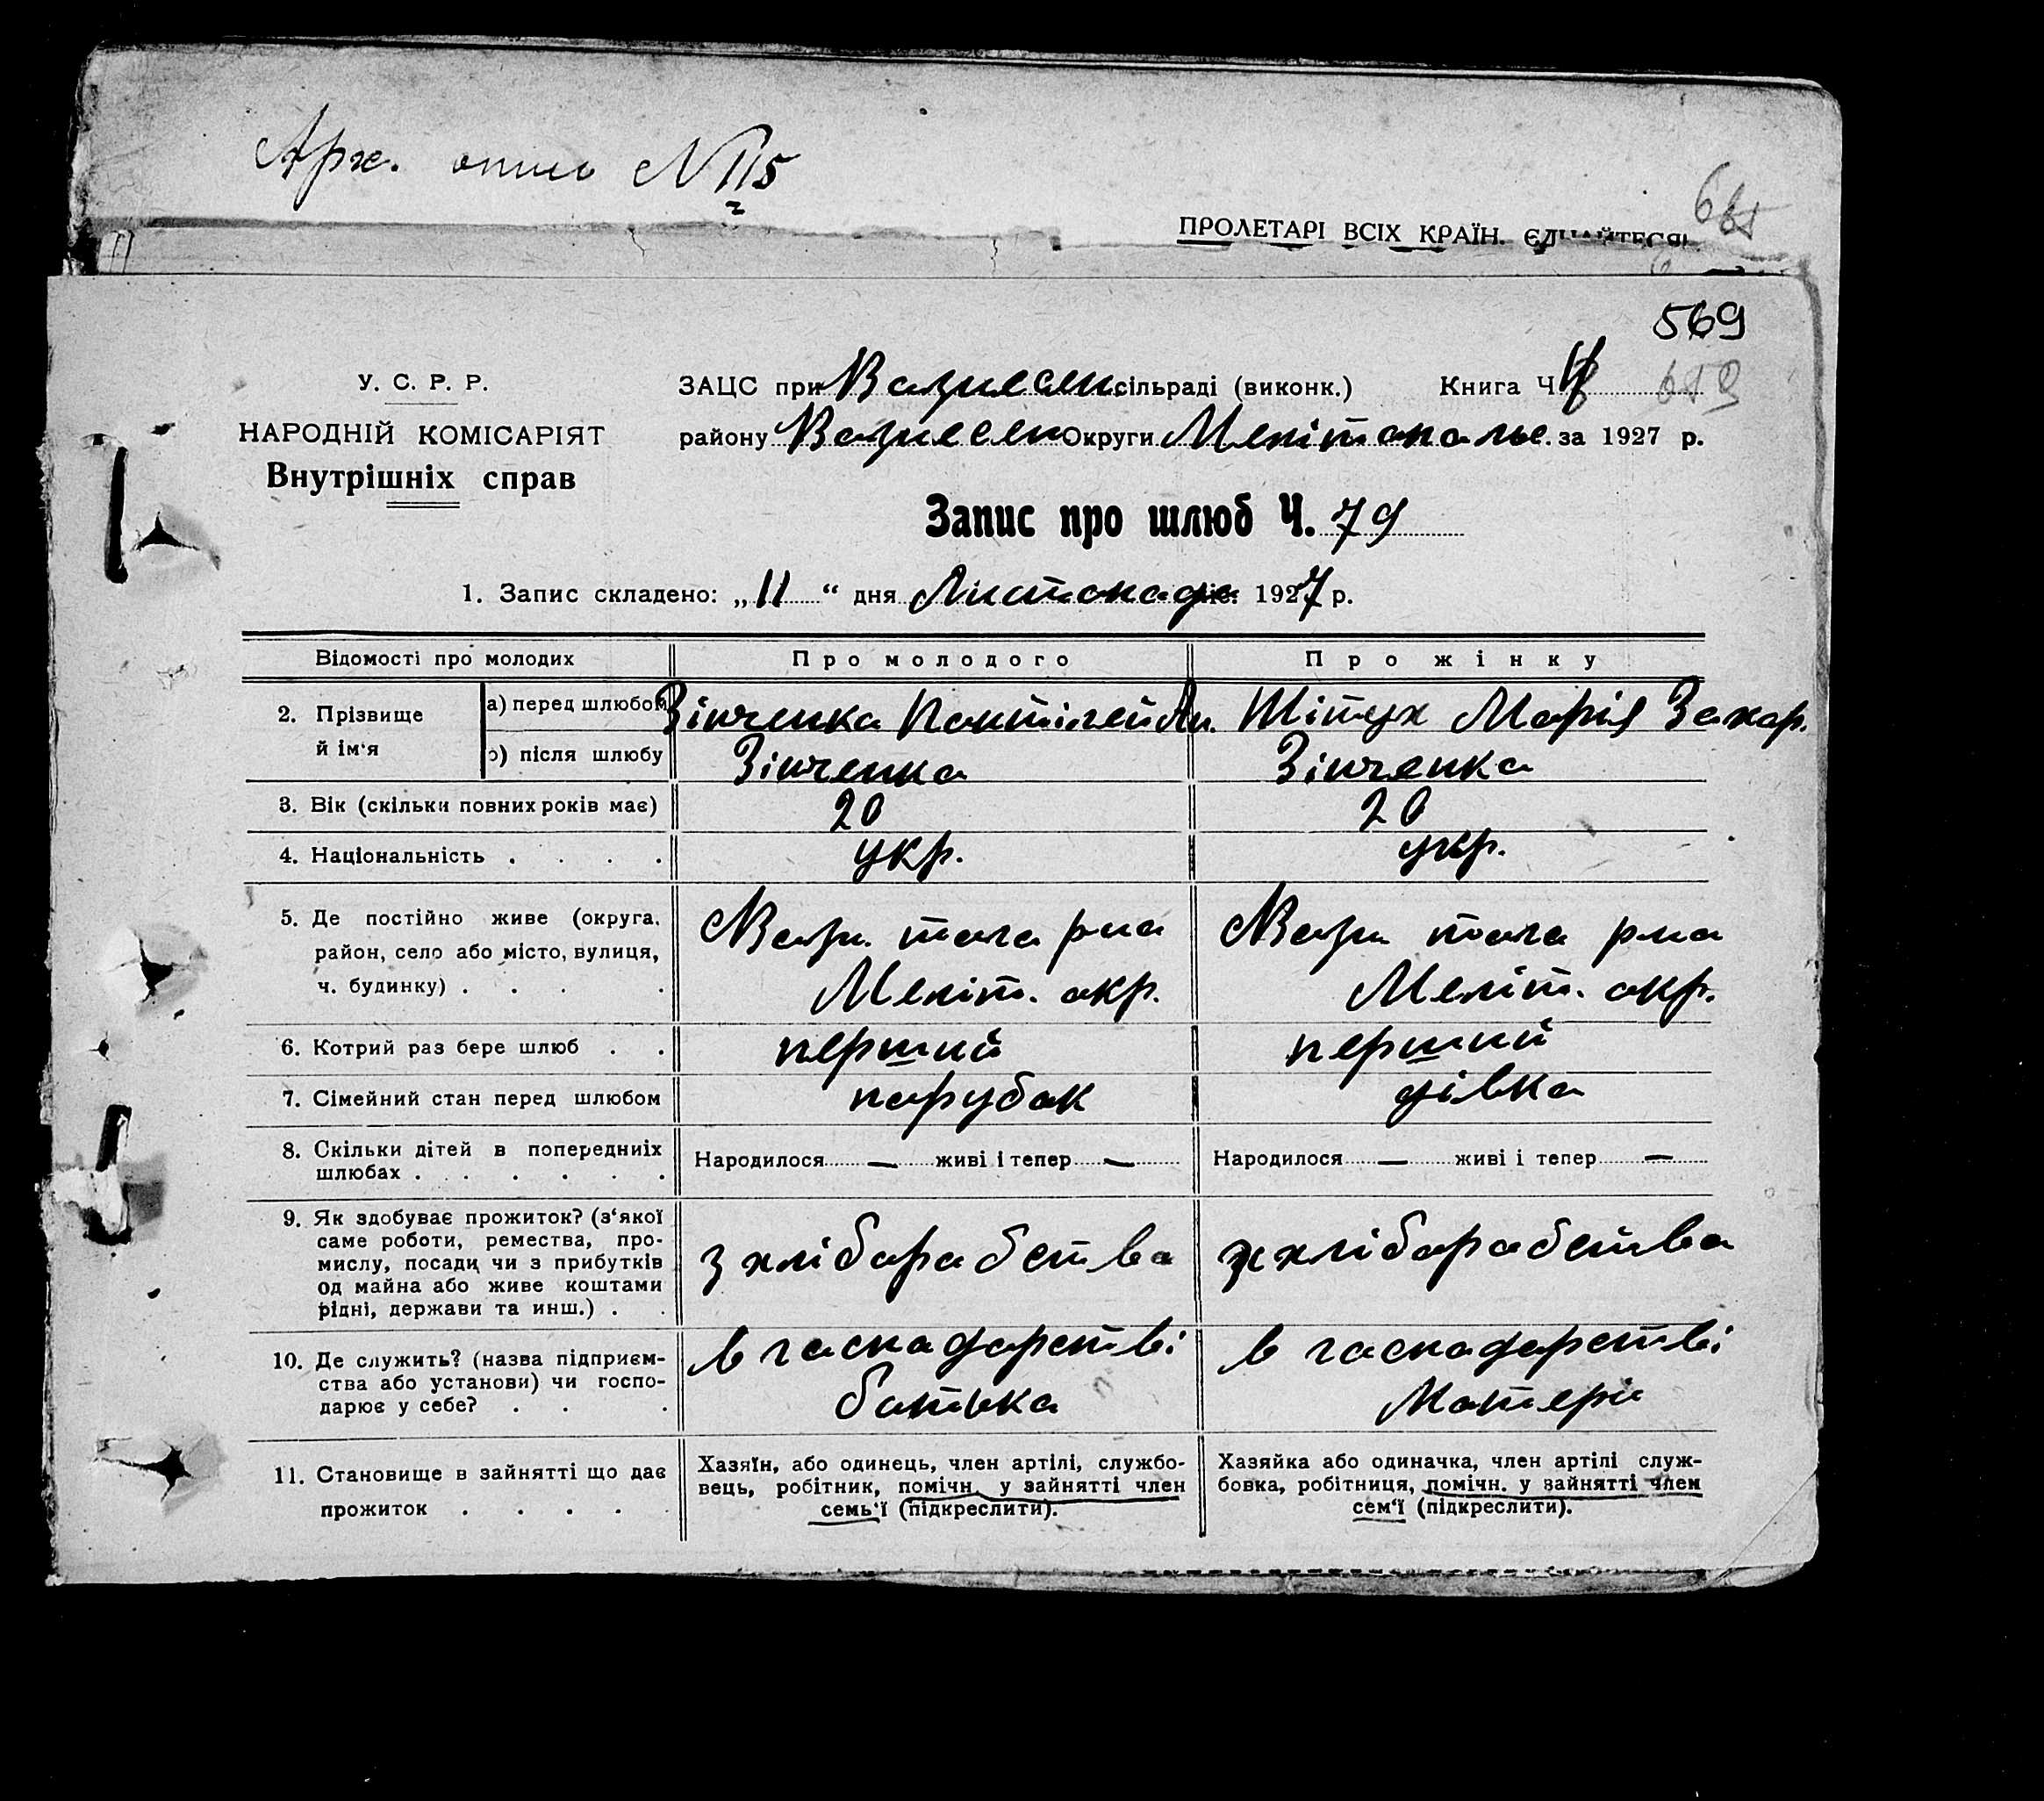 Арх. опись N 115
ПРОЛЕТАРІ ВСІХ КРАЇН, ЄДНАЙТЕСЯ!
569
У. С. Р. Р.
НАРОДНІЙ КОМІСАРІЯТ
Внутрішніх справ
ЗАЦС при Вознесен. сільраді (виконк.) Книга Ч.
району Вознесен Округи Мелітопольс. за 1927 р.
Запис про шлюб Ч. 79
1. Запис складено: „11“ дня Листопада міс. 1927 р.
Відомості про молодих Про молодого Про жінку
2. Прізвище й ім‘я
а) перед шлюбом Зінченко Понтілей Ан. Шітух Марія Захар.
б) після шлюбу Зінченко Зінченко
3. Вік (скільки повних років має) 20 20
4. Національність . . . . укр. укр.
5. Де постійно живе (округа, район, село або місто, вулиця, ч. будинку) . . . .
Возн. того р-на Возн. того р-на
Меліт. окр. Меліт. окр.
6. Котрий раз бере шлюб . . перший перший
7. Сімейний стан перед шлюбом парубок дівка
8. Скільки дітей в попередниіх шлюбах . . . . . .
Народилося — живі і тепер — Народилося — живі і тепер —
9. Як здобуває прожиток? (з‘якої
саме роботи, ремества, про-
мислу, посади чи з прибутків
од майна або живе коштами
рідні, держави та инш.) . .
з хліборобства з хліборобства
10. Де служить? (назва підприєм-
ства або установи) чи госпо-
дарює у себе? . . .
в господарстві в господарстві
батька Матери
11. Становище в зайнятті що дає
прожиток . . . . .
Хазяїн, або одинець, член артілі, службо-
вець, робітник, помічн. у зайнятті член
семь‘ї (підкреслити).
Хазяйка або одиначка, член артілі служ-
бовка, робітниця, помічн. у зайнятті член
сем‘ї (підкреслити).